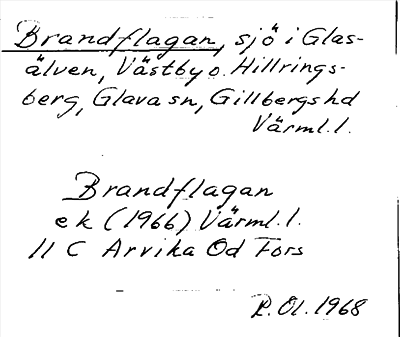 Brandflagan, sjö i Glas-
älven, Västby o. Hillrings-
berg, Glava sn, Gillbergs hd
Värml. l.
Brandflagan
ek (1966) Värml. l.
11 C Arvika Od Fors
P. Öl. 1968